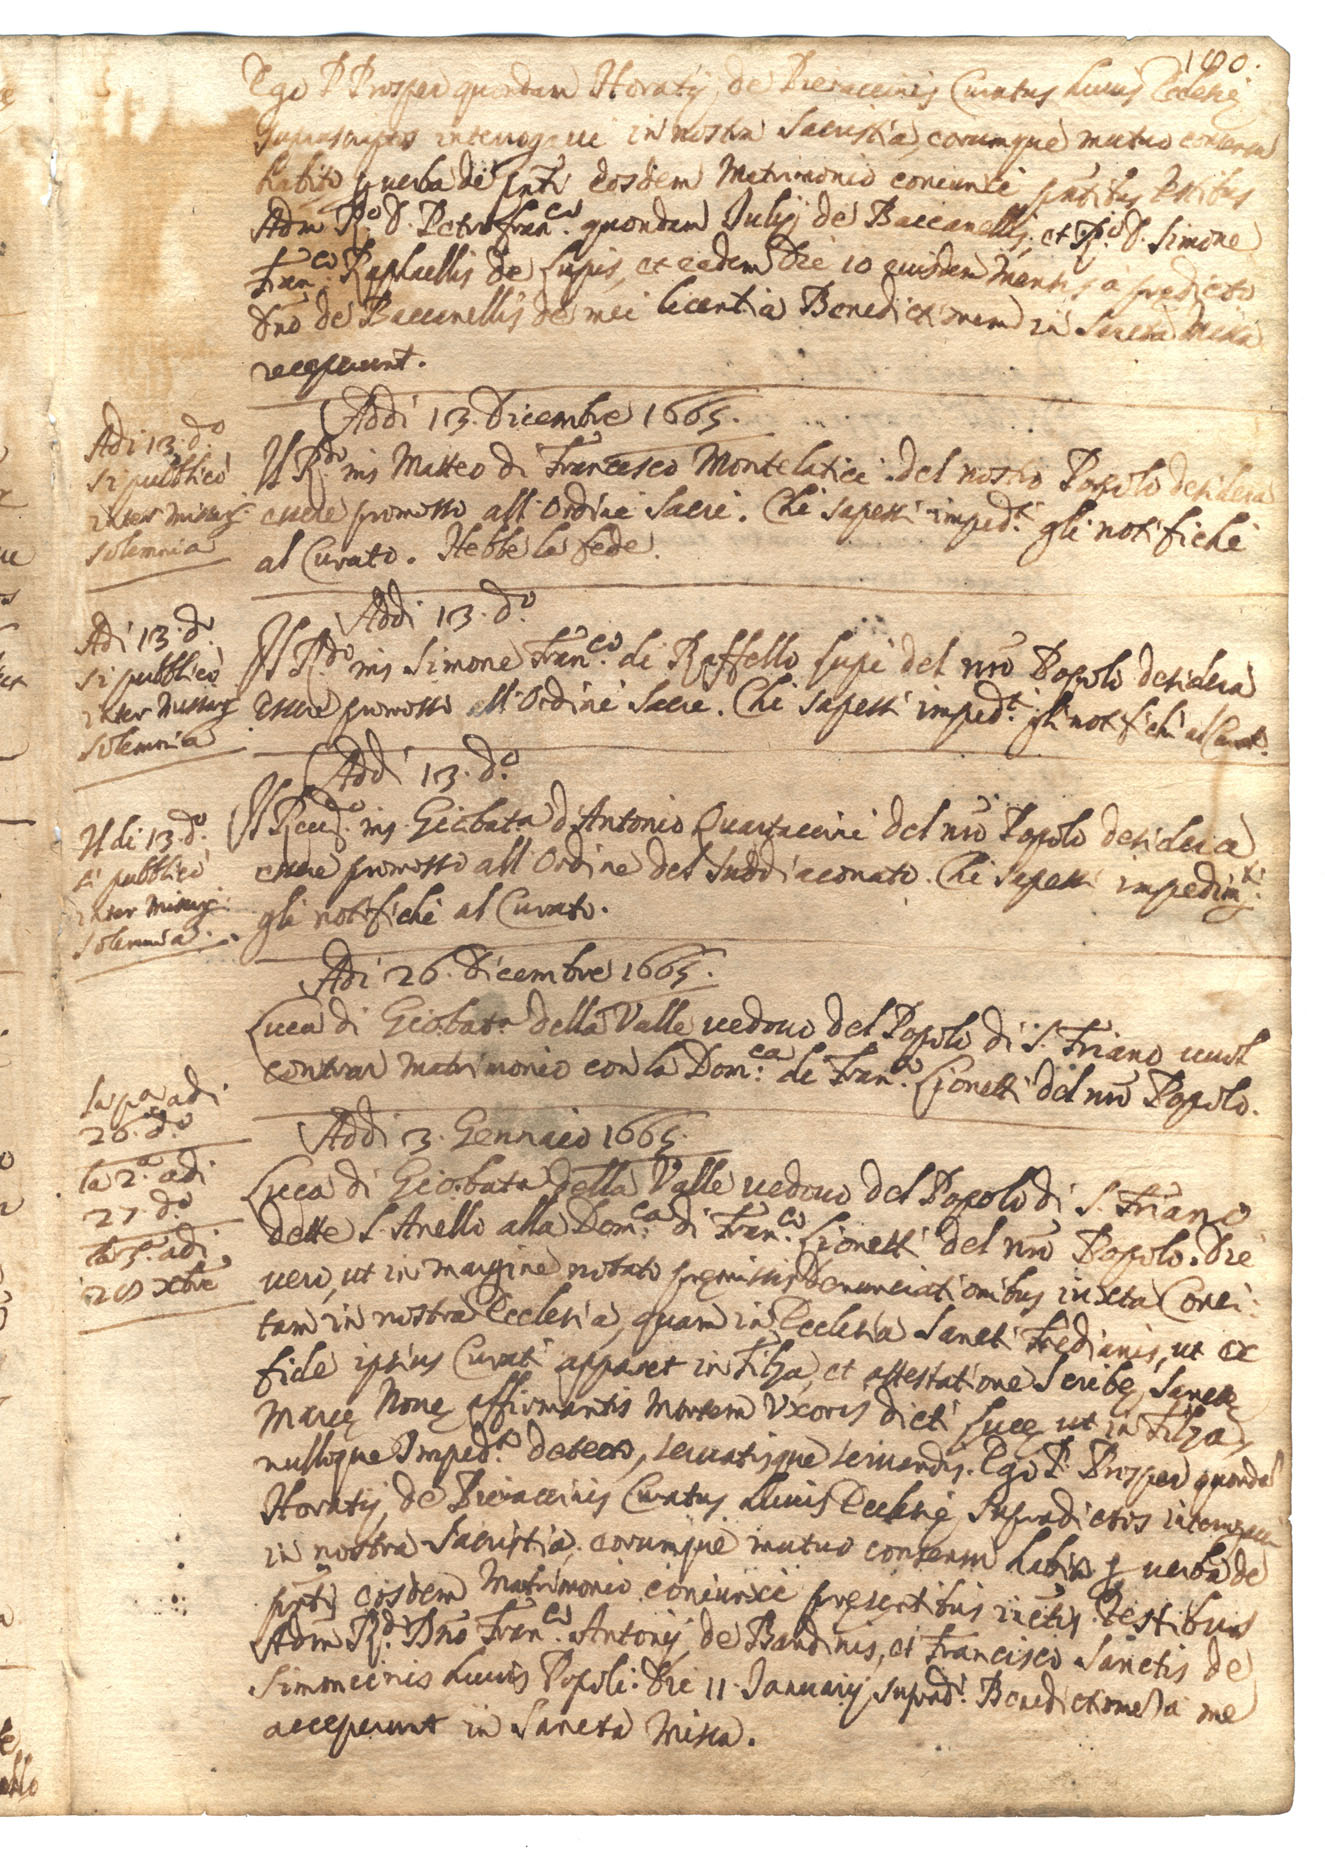 100.
Ego P. Prosper quondam Horatij de Pieraccinis Curatus huius Ecclesię
suprascriptos interrogaui in nostra Sacristia, eorumque mutuo consensu
habito p uerba de pnti eosdem Matrimonio coniunxi pntibus testibus
Adm R.do D. Petro Fran.co quondam Julij de Baccanellis, et R.do D. Simone
Fran.co Raphaellis de Lupis, et eadem Die 10 eiusdem Mensis a predicto
Dno de Baccanellis de mei licentia Benedictionem in Sancta Missa
receperunt.
Addi 13. Dicembre 1665.
Adi 13. d.o
si pubblicò
inter Missarũ
solemnia
Il R.do ms Matteo di Francesco Montelatici del nostro Popolo desidera
essere promosso all'Ordini Sacri. Chi sapessi imped.ti gli notifichi
al Curato. Hebbe la fede.
Addi 13. d.o
Adi 13. d.o
si pubblicò
inter Missarũ
solemnia
Il R.do ms Simone Fran.co di Raffello Lupi del nro Popolo desidera
essere promosso all'Ordini Sacri. Chi sapessi imped.ti gli notifichi al Curat.
Addi 13. d.o
Il di 13. d.o
si pubblicò
inter Missarũ
solemnia.
Il Reud.o ms Giobata d'Antonio Quartaccini del nro Popolo desidera
essere promosso all'Ordine del Suddiaconato. Chi sapessi impedim.ti
gli notifichi al Curato.
Adi 26. Dicembre 1665.
Luca di Giobata della Valle uedouo del Popolo di S. Friano uuol
contrar Matrimonio con la Dom.ca di Fran.co Lionetti del nro Popolo.
la pa adi
26. d.o
la 2.a adi
27 d.o
la 3.a adi
28 xbre
Addi 3. Gennaio 1665.
Luca di Giobata della Valle uedouo del Popolo di S. Friano
dette l'Anello alla Dom.ca di Fran.co Lionetti del nro Popolo. Die
uero, ut in margine notato premissis Denunciationibus iuxta Conci:
tam in nostra Ecclesia, quam in Ecclesia Sancti Frediani, ut ex
fide ipsius Curati apparet in Filza, et attestatione Scribę Sanctę
Marię Nouę affirmantis Mortem Uxoris dicti Lucę ut in Filza,
nulloque Imped.to detecto, seruatisque seruandis. Ego P. Prosper quondã
Horatij de Pieraccinis Curatus huius Ecclesię supradictos interrogaui
in nostra Sacristia, eorumque mutuo consensu habito p uerba de
pnti eosdem Matrimonio coniunxi presentibus testibus
Adm R.do Dno Fran.co Antonij de Bandinis, et Francisco Sanctis de
Simoncinis huius Popoli. Die 11. Januarij suprad.i Benedictionem a me
acceperunt in Sancta Missa.